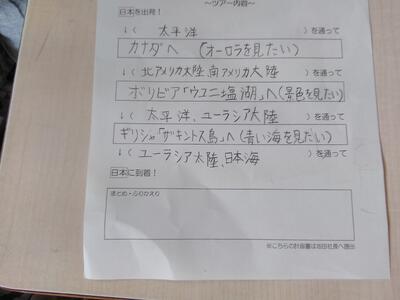 ~ツアー内容~
日本を出発！
↓( 太平洋 )を通って
カナダへ (オーロラを見たい)
↓( 北アメリカ大陸,南アメリカ大陸 )を通って
ボリビア「ウユニ塩湖」へ(景色を見たい)
↓( 太平洋、ユーラシア大陸 )を通って
ギリシャ「ザキントス島」へ(青い海を見たい)
↓( ユーラシア大陸、日本海 )を通って
日本に到着！
まとめ・ふりかえり
※こちらの計画書は池田社長へ提出